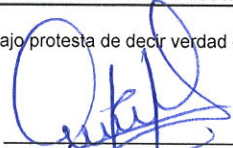 ajo protesta de decir verdad